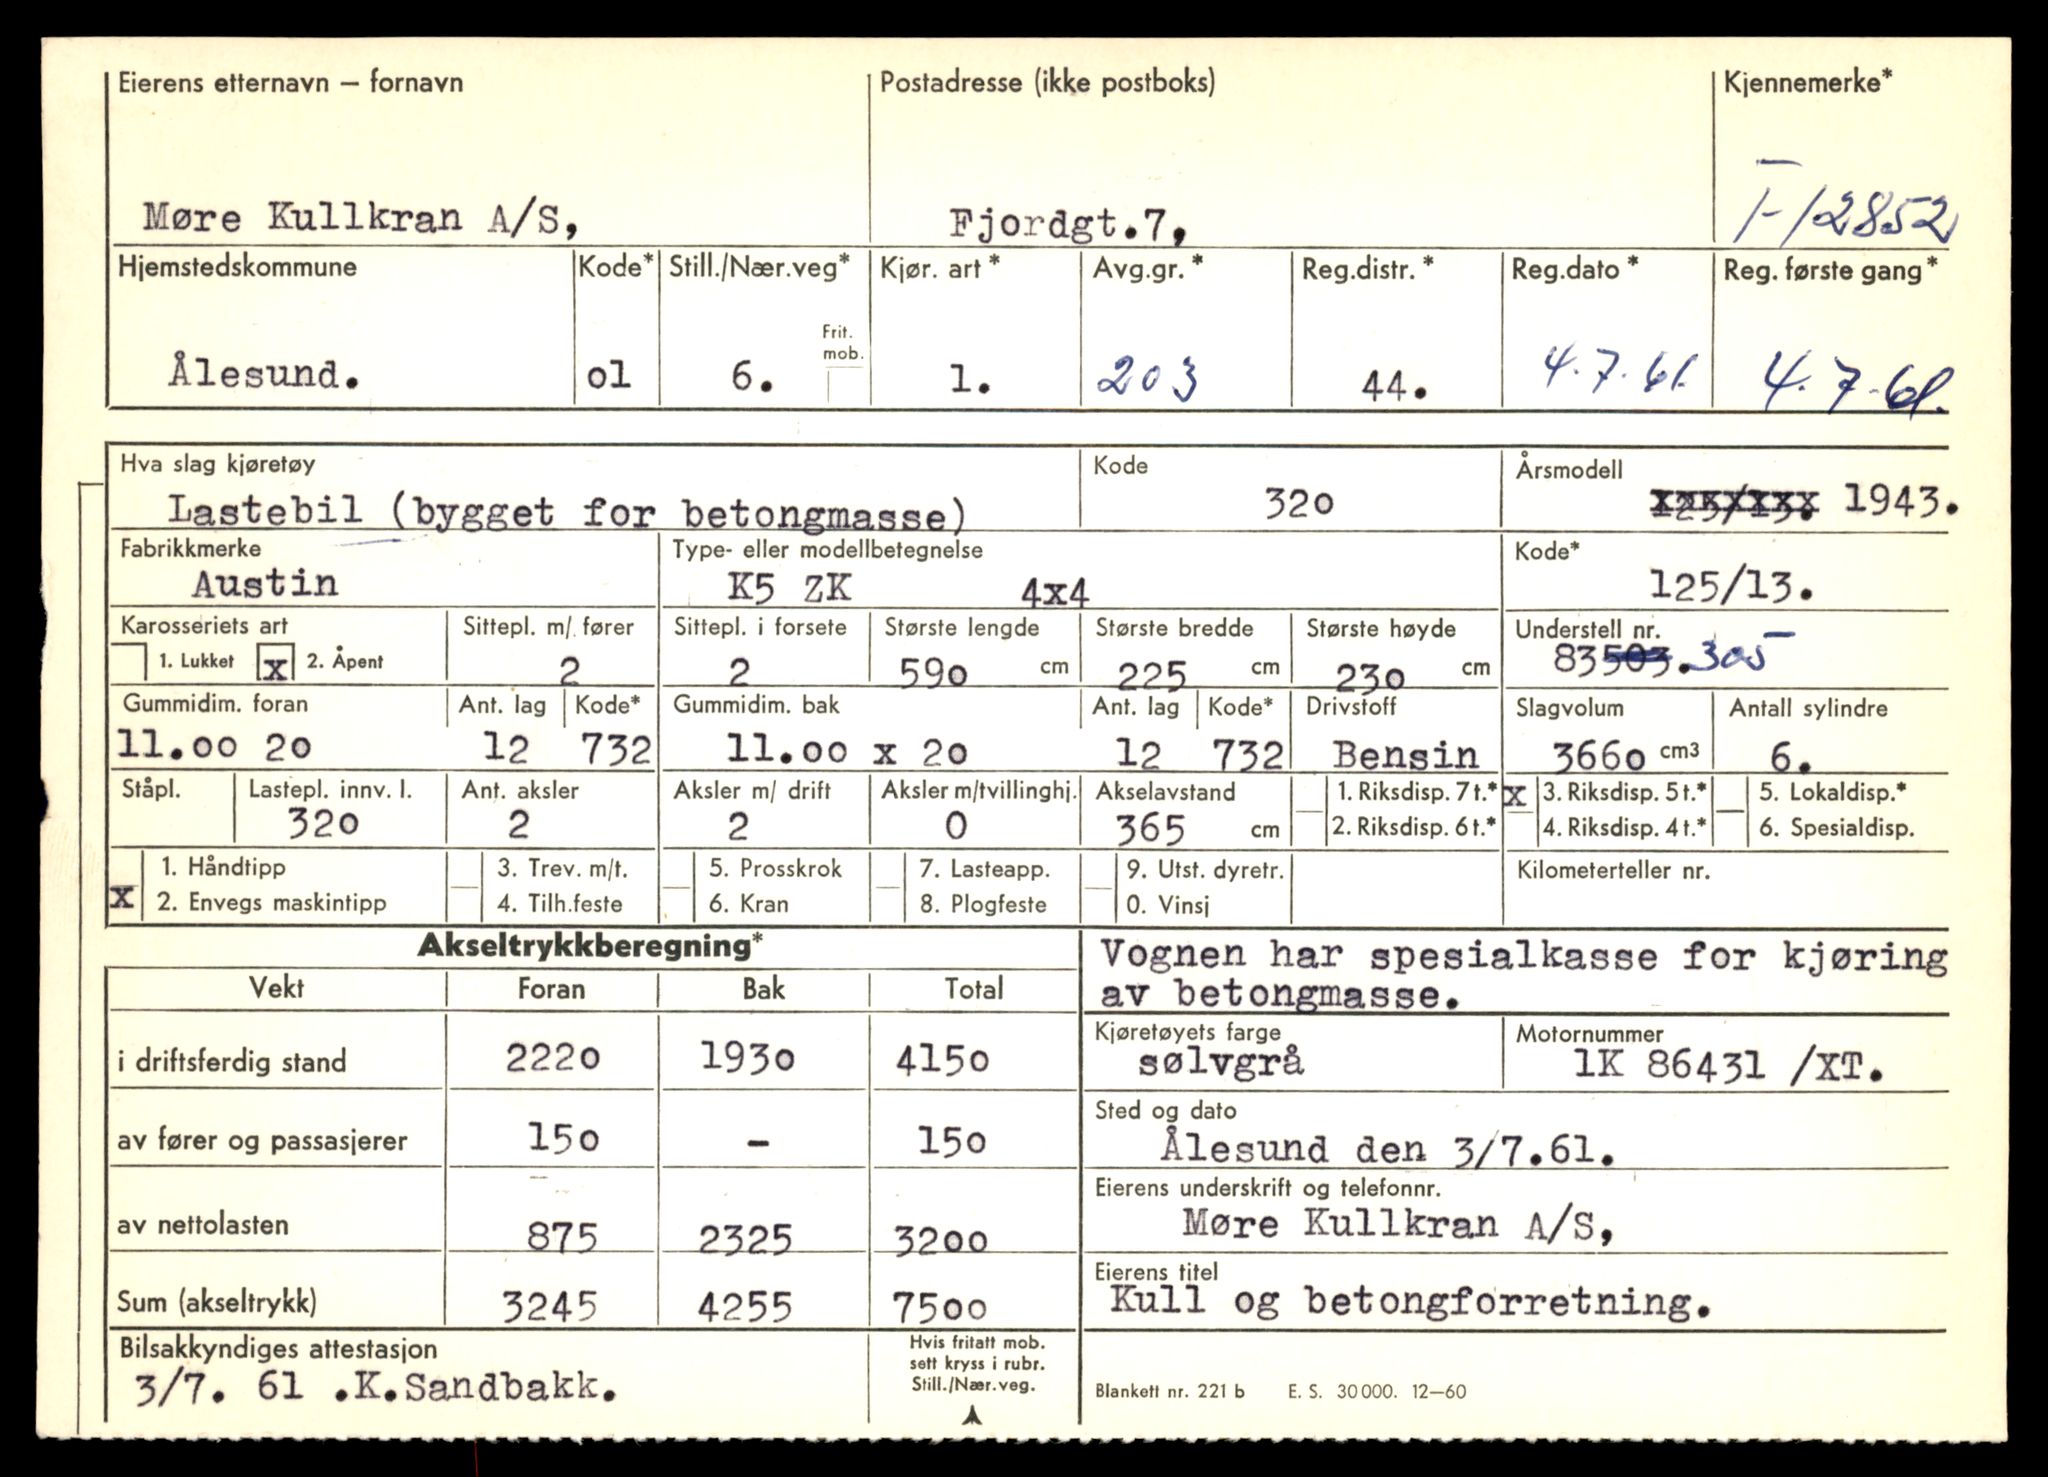 Eierens etternavn – fornavn Postadresse (ikke postboks) Kjennemerke*
Møre Kullkran A/S, Fjordgt.7, T-12852
Hjemstedskommune Kode* Still./Nær.veg* Kjør. art* Avg.gr.* Reg.distr.* Reg.dato* Reg. første gang*
Frit. mob.
Ålesund. 01 6. 1. 203 44. 4.7.61. 4.7-61.
Hva slag kjøretøy Kode Årsmodell
Lastebil (bygget for betongmasse) 320 125/13. 1943.
Fabrikkmerke Type- eller modellbetegnelse Kode*
Austin K5 ZK 4x4 125/13.
Karosseriets art Sittepl. m/. fører Sittepl. i forsete Største lengde Største bredde Største høyde Understell nr.
1. Lukket x 2. Åpent 2 2 590 cm 225 cm 230 cm 83503. 305
Gummidim. foran Ant. lag Kode* Gummidim. bak Ant. lag Kode* Drivstoff Slagvolum Antall sylindre
11.00 20 12 732 11.00 x 20 12 732 Bensin 3660 cm3 6.
Ståpl. Lastepl. innv. l. Ant. aksler Aksler m/ drift Aksler m/tvillinghj. Akselavstand 1. Riksdisp. 7 t.* x 3. Riksdisp. 5 t.* 5. Lokaldisp.*
320 2 2 0 365 cm 2. Riksdisp. 6 t.* 4. Riksdisp. 4 t.* 6. Spesialdisp.
1. Håndtipp 3. Trev. m/t. 5. Prosskrok 7. Lasteapp. 9. Utst. dyretr. Kilometerteller nr.
x 2. Envegs maskintipp 4. Tilh.feste 6. Kran 8. Plogfeste 0. Vinsj
Akseltrykkberegning*
Vekt Foran Bak Total
i driftsferdig stand 2220 1930 4150
av fører og passasjerer 150 – 150
av nettolasten 875 2325 3200
Sum (akseltrykk) 3245 4255 7500
Bilsakkyndiges attestasjon
3/7. 61 .K.Sandbakk.
Hvis fritatt mob.
sett kryss i rubr.
Still./Nær.veg.
Vognen har spesialkasse for kjøring
av betongmasse.
Kjøretøyets farge Motornummer
sølvgrå 1K 86431 /XT.
Sted og dato
Ålesund den 3/7.61.
Eierens underskrift og telefonnr.
Møre Kullkran A/S,
Eierens titel
Kull og betongforretning.
Blankett nr. 221 b E. S. 30 000. 12–60